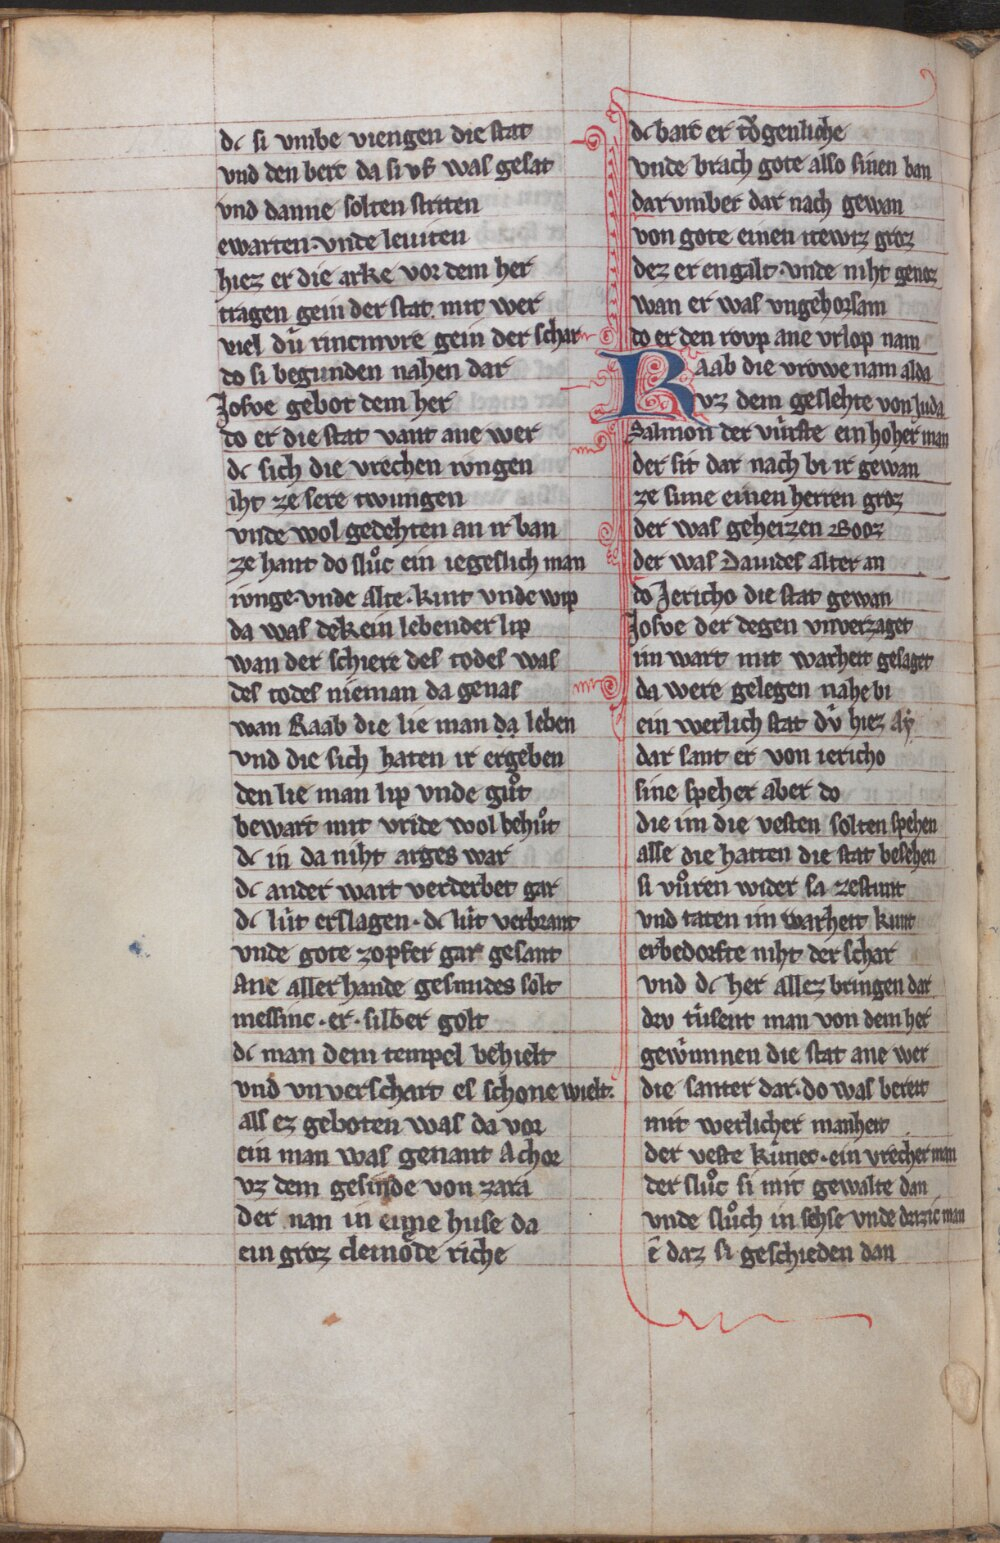 dc si vmbe viengen die stat
vnd den berc da si vf was gesat
vnd danne solten striten
ewarten· vnde leuiten
hiez er die arke vor dem her
tragen gein der stat mit wer
viel dv̂ rincmvre gein der schar
do si begunden nahen dar
Josve gebot dem her
do er die stat vant ane wer
dc sich die vrechen ivngen
iht ze sere twungen
vnde wol gedehten an ir ban
ze hant do slůc ein iegeslich man
ivnge·vnde alte·kint vnde wip
da was dekein lebender lip
wan der schiere des todes was
des todes nieman da genas
wan Raab die lie man da leben
vnd die sich haten ir ergeben
den lie man lip vnde gůt
bewart mit vride wol behůt
dc in da niht arges war
dc ander wart verderbet gar
dc lv̂t erslagen· dc lv̂t verbrant
vnde gote zopfer gar gesant
Ane aller hande gesmides solt
messinc·er·silber golt
dc man dem tempel behielt
vnd vnverschart es schone wielt·
als ez geboten was da vor
ein man was genant Achor
vz dem gesinde von zara
der nan in eime huse da
ein groz cleinǒde riche
dc barc er tǒgenliche
vnde brach gote also sinen ban
dar vmber dar nach gewan
von gote einen itewiz groz
dez er engalt·vnde niht genoz
wan er was vngehorsam
do er den rovp ane vrlop nam
Raab die vrowe nam alda
vz dem geslehte von Juda
Salmon der vv̂rste ein hoher man
der sit dar nach bi ir gewan
ze sune einen herren groz
der was geheizen Booz
der was Dauides alter an
do Jericho die stat gewan
Josve der degen vnverzaget
im wart mit warheit gesaget
da were gelegen nahe bi
ein werlich stat dv̂ hiez Aẏ
dar sant er von iericho
sine speher aber do
die im die vesten solten spehen
alse die hatten die stat besehen
si vůren wider sa zestunt
vnd taten im warheit kunt
erbedorfte niht der schar
vnd dc her allez bringen dar
drv tv̂sent man von dem her
gewv̂nnen die stat ane wer
die santer dar·do was bereit
mit werlicher manheit
der veste kv̂nec·ein vrecher man
der slůc si mit gewalte dan
vnde slůch in sehse vnde drizic man
ê daz si geschieden dan